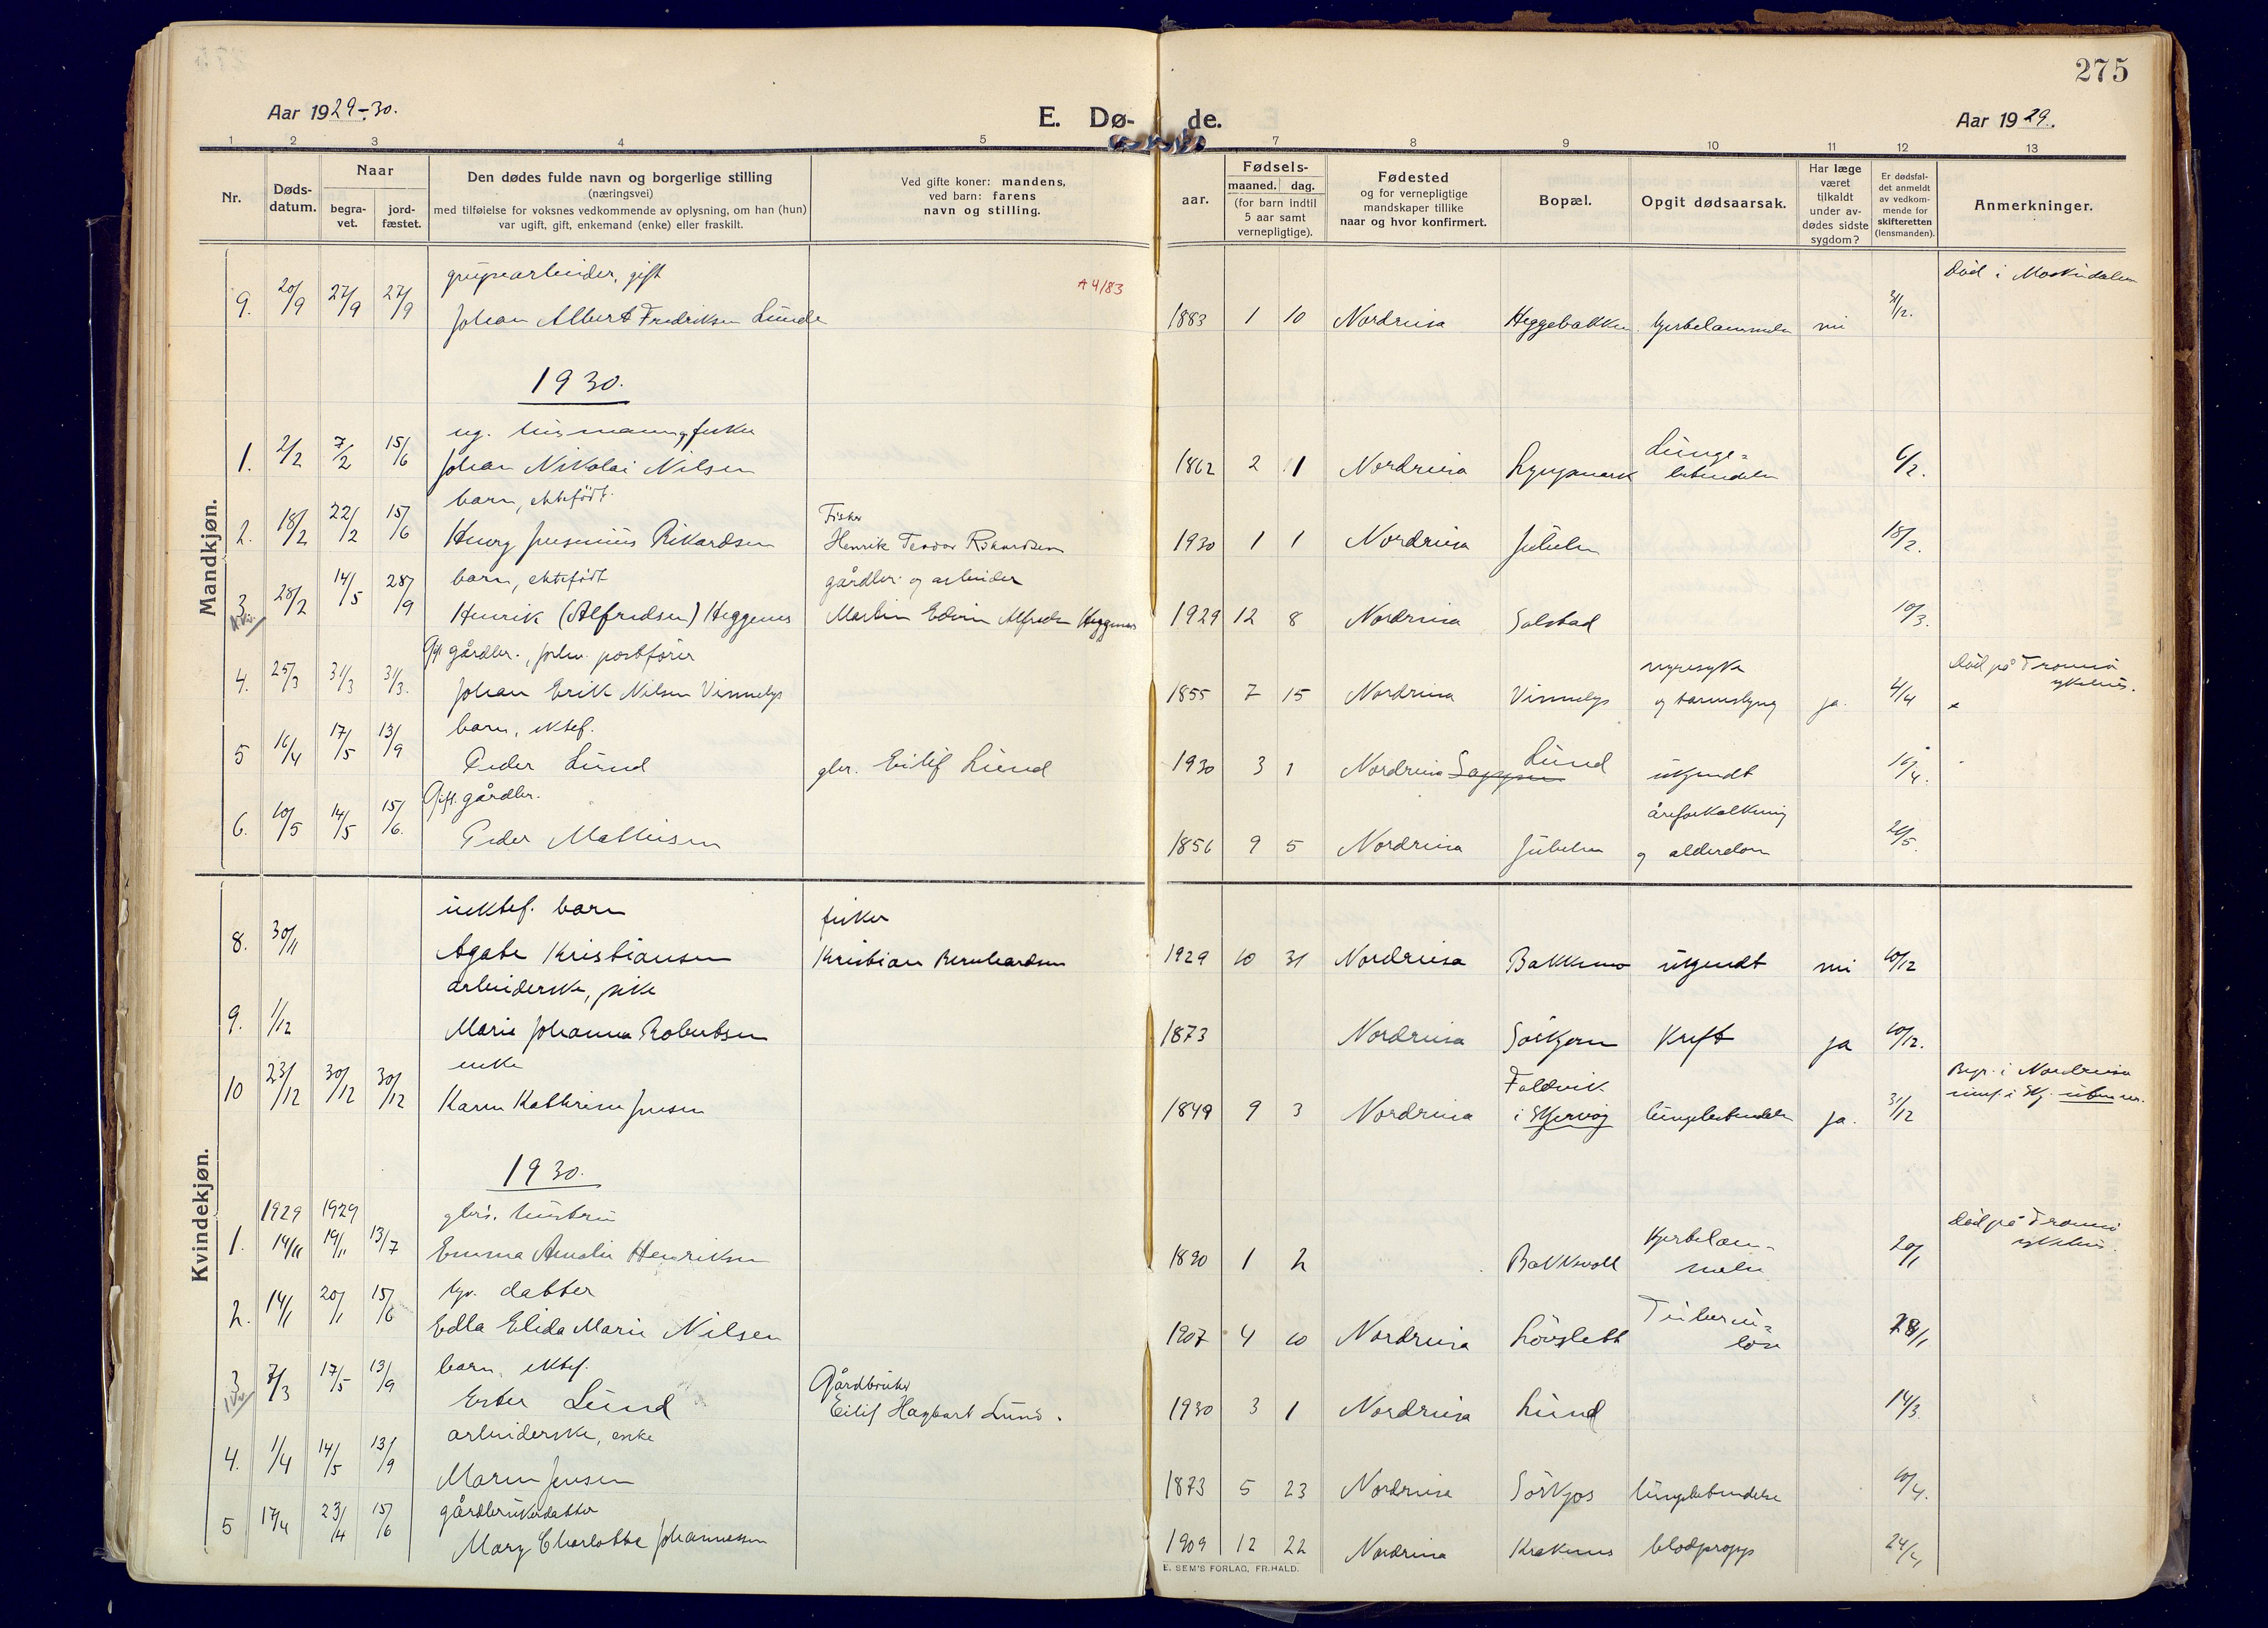 275
Aar 1929-30.
E. Dø-
de.
Aar 1929.
1 2 3 4 5 7 8 9 10 11 12 13
Nr.
Døds-
datum.
Naar
begra-
vet.
jord-
fæstet.
Den dødes fulde navn og borgerlige stilling
(næringsvei)
med tilføielse for voksnes vedkommende av oplysning, om han (hun)
var ugift, gift, enkemand (enke) eller fraskilt.
Ved gifte koner: mandens,
ved barn: farens
navn og stilling.
aar.
Fødsels-
maaned. dag.
(for barn indtil
5 aar samt
vernepligtige).
Fødested
og for vernepligtige
mandskaper tillike
naar og hvor konfirmert.
Bopæl.
Opgit dødsaarsak.
Har læge
været
tilkaldt
under av-
dødes sidste
sygdom?
Er dødsfal-
det anmeldt
av vedkom-
mende for
skifteretten
(lensmanden).
Anmerkninger.
Mandkjøn.
grupearbeider, gift
Död i Moskidalen
A 4/83
9. 20/9 27/9 27/9 Johan Albert Fredriksen Lunde 1883 1 10 Nordreisa Heggebakken hjertelammelse nei 31/12.
1930.
ug. husmann og fisker
1. 2/2 7/2 15/6 Johan Nikolai Nilsen 1862 2 11 Nordreisa Lyngsmark Lunge=
betendelse 6/2.
barn, ektefödt.
Fisker
2. 18/2 22/2 15/6 Rikardsen Henrik Teodor Rikardsen 1930 1 1 Nordreisa Jubelen 18/2.
barn, ektefödt
gårdbr. og arbeider
3 28/2 14/5 28/9 Henrik (Alfredsen) Heggenes Martin Edvin Alfredsen Heggenes 1929 12 8 Nordreisa Solstad 10/3.
Gift gårdbr., forhv. postfører
4. 25/3 31/3 31/3. Johan Erik Nilsen Vinnelys 1855 7 15 Nordreisa Vinnelys nyresyke
og tarmslyng ja. 4/4 Död på Tromsö
sykehus.
barn, ektef.
5 16/4 17/5 13/9 Peder Lund gbr. Eilif Lund 1930 3 1 Nordreisa Sappen Lund ukjendt 16/4.
Gift. gårdbr.
6. 10/5 14/5 15/6. Peder Mathisen 1856 9 5 Nordreisa Jubelen åreforkalkning
og alderdom 26/5.
Kvindekjøn.
uektef. barn
fisker
8. 30/11 Agate Kristiansen Kristian Bernhardsen 1929 10 31 Nordreisa Bakkemo ukjendt nei 10/12
arbeiderske, pike
9. 1/12 Marie Johanna Robertsen 1873 Nordreisa Sörkjosen Kreft ja 10/12.
enke
10 23/12 30/12 30/12 Karen Kathrine Jensen 1849 9 3 Nordreisa Foldvik
i Skjervöy lungebetendelse ja. 31/12 Begr. i Nordreisa
1930.
gbrs. hustru
1. 1929 14/11 1929 19/11 13/7 Emma Amalie Henriksen 1890 1 2 Bakkevoll Hjertelam-
melse 20/1 Död på Tromsö
sykehus.
datter
2. 14/1 20/1 15/6 Edla Elida Marie Nilsen 1907 4 10 Nordreisa Lövslett Tuberku=
lose 28/1
barn, ektef.
Gårdbruker
3 7/3 17/5 13/9 Ester Lund Eilif Hagbart Lund. 1930 3 1 Nordreisa Lund 14/3.
arbeiderske, enke
4. 1/4 14/5 13/9 Maren Jensen 1873 5 23 Nordreisa Sörkjos lungebetendelse 10/4.
gårdbrukerdatter
5 17/4 23/4 15/6 Mary Charlotte Johannessen 1909 12 22 Nordreisa Krakenes blodpropp 24/4
E. SEM'S FORLAG, FR.HALD.